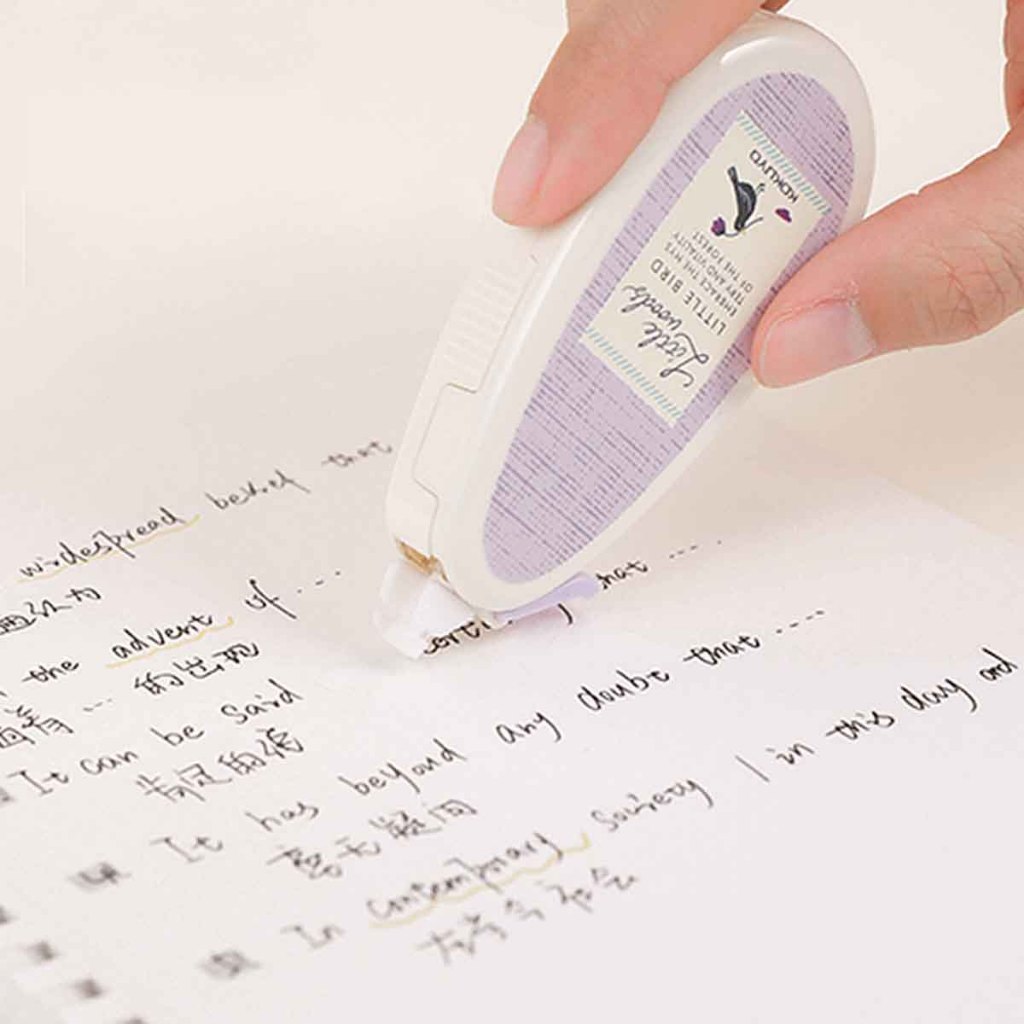 KOKUYO
EMBRACE THE MYS
TERY AND VITALITY
OF THE FOREST
LITTLE BIRD
Little
woods
widespread belief that
the advent of ...
的出现
It can be said
肯定的说
that ....
It has beyond any doubt that ....
毫无疑问
In contemporary society / in this day and